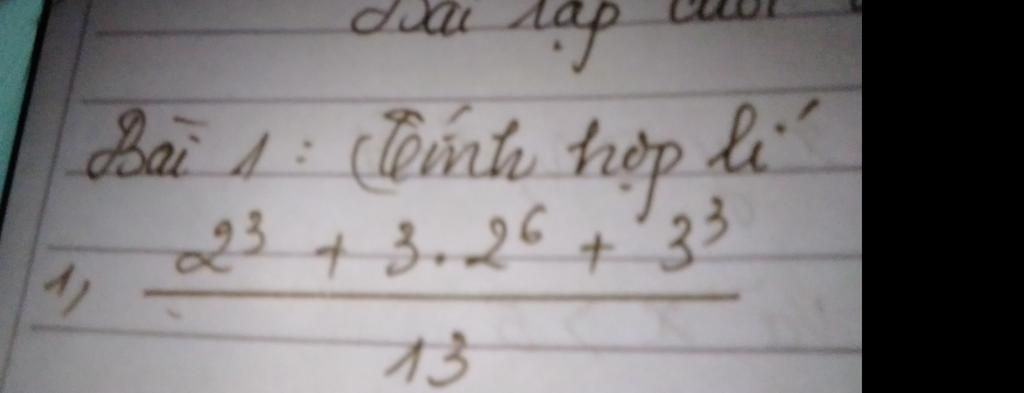 Bài tập cuối
Bài 1: Tính hợp lí
1, \frac{2^3 + 3.2^6 + 3^3}{13}